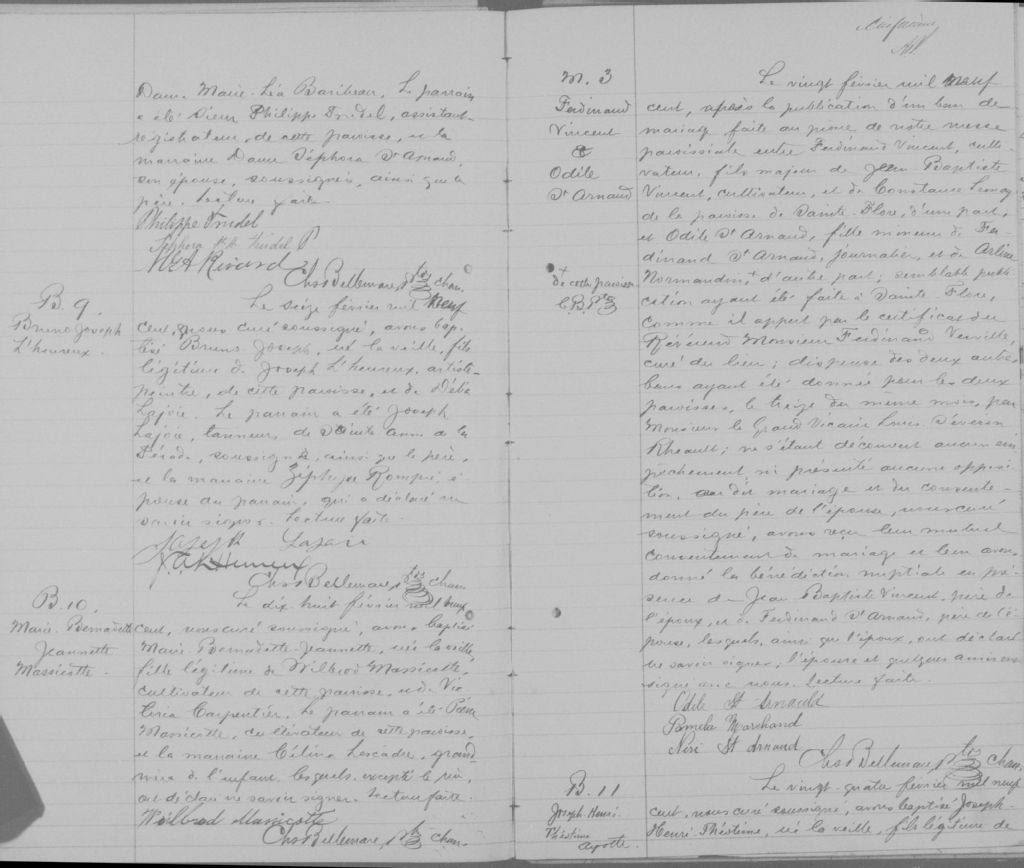 Dame Marie-Léa Baribeau. Le parrain
a été Sieur Philippe Trudel, assistant-
régistrateur, de cette paroisse, et la
marraine Dame Séphora St Arnaud,
son épouse, soussignés, ainsi que le
père. Lecture faite
Philippe Trudel
Trudel
Rivard
Chs Bellemare, Ptre chan.
B. 9.
Bruno Joseph
L'heureux.
Le seize février mil neuf
cent, nous curé soussigné, avons bap-
tisé Bruno Joseph, né la veille, fils
légitime de Joseph L'heureux, artiste-
peintre, de cette paroisse, et de Délia
Lajoie. Le parrain a été Joseph
Lajoie, tanneur de Sainte Anne de la
Pérade, soussigné, ainsi que le père,
et la marraine Zéphyse Rompré, é-
pouse du parrain, qui a déclaré ne
savoir signer. Lecture faite.
Joseph Lajoie
L'Heureux
Chs Bellemare, Ptre chan.
B. 10.
Marie-Bernadette
Jeannette
Massicotte.
Le dix huit février mil neuf
cent, nous curé soussigné, avons baptisé
Marie-Bernadette-Jeannette, née la veille,
fille légitime de Wilbrod Massicotte,
cultivateur de cette paroisse, et de Vic
toria Carpentier. Le parrain a été
Massicotte, cultivateur de cette paroisse,
et la marraine Célina Lescadre, grand
mère de l'enfant lesquels, excepté le père,
ont déclaré ne savoir signer. Lecture faite.
Wilbrod Massicotte
Chs Bellemare, Ptre chan.
Cinquième
M. 3
Ferdinand
Vincent
&
Odile
St Arnaud
Le vingt février mil neuf
cent, après la publication d'un ban de
mariage faite au prône de notre messe
paroissiale entre Ferdinand Vincent, culti-
vateur, fils majeur de Jean-Baptiste
Vincent, cultivateur, et de Constance Lemay
de la paroisse de Sainte-Flore, d'une part,
et Odile St Arnaud, fille mineure de Fer-
dinand St Arnaud, journalier, et de Arline
Normandin,+ d'autre part; semblable publi-
+
de cette paroisse
C.B. Ptre
cation ayant été faite à Sainte-Flore,
comme il appert par le certificat du
Révérend Monsieur Ferdinand Verville,
curé du lieu; dispense des deux autres
bans ayant été donnée pour les deux
paroisses, le treize du même mois, par
Monsieur le Grand Vicaire Louis Séverin
Rheault; ne s'étant découvert aucun em
pêchement ni présenté aucune opposi-
tion, au dit mariage et du consente-
ment du père de l'épouse, nous curé
soussigné, avons reçu leur mutuel
consentement de mariage et leur avons
donné la bénédiction nuptiale en pré-
sence de Jean Baptiste Vincent, père de
l'époux, et de Ferdinand St Arnaud, père de l'é-
pouse, lesquels, ainsi que l'époux, ont déclaré
ne savoir signer; l'épouse et quelques amis ont
signé avec nous. Lecture faite.
Odile St Arnauld
Pamela Marchand
Néré St Arnaud
Chs Bellemare, Ptre chan.
B. 11
Joseph-Henri-
Théotime
Ayotte.
Le vingt-quatre février mil neuf
cent, nous curé soussigné, avons baptisé Joseph-
Henri-Théotime, né la veille, fils légitime de